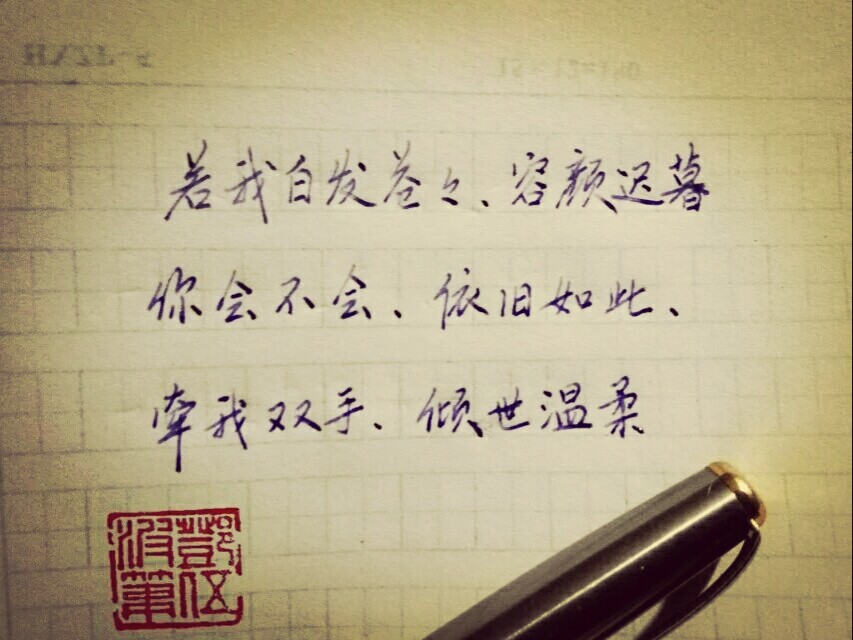 若我白发苍々、容颜迟暮
你会不会、依旧如此、
牵我双手、倾世温柔